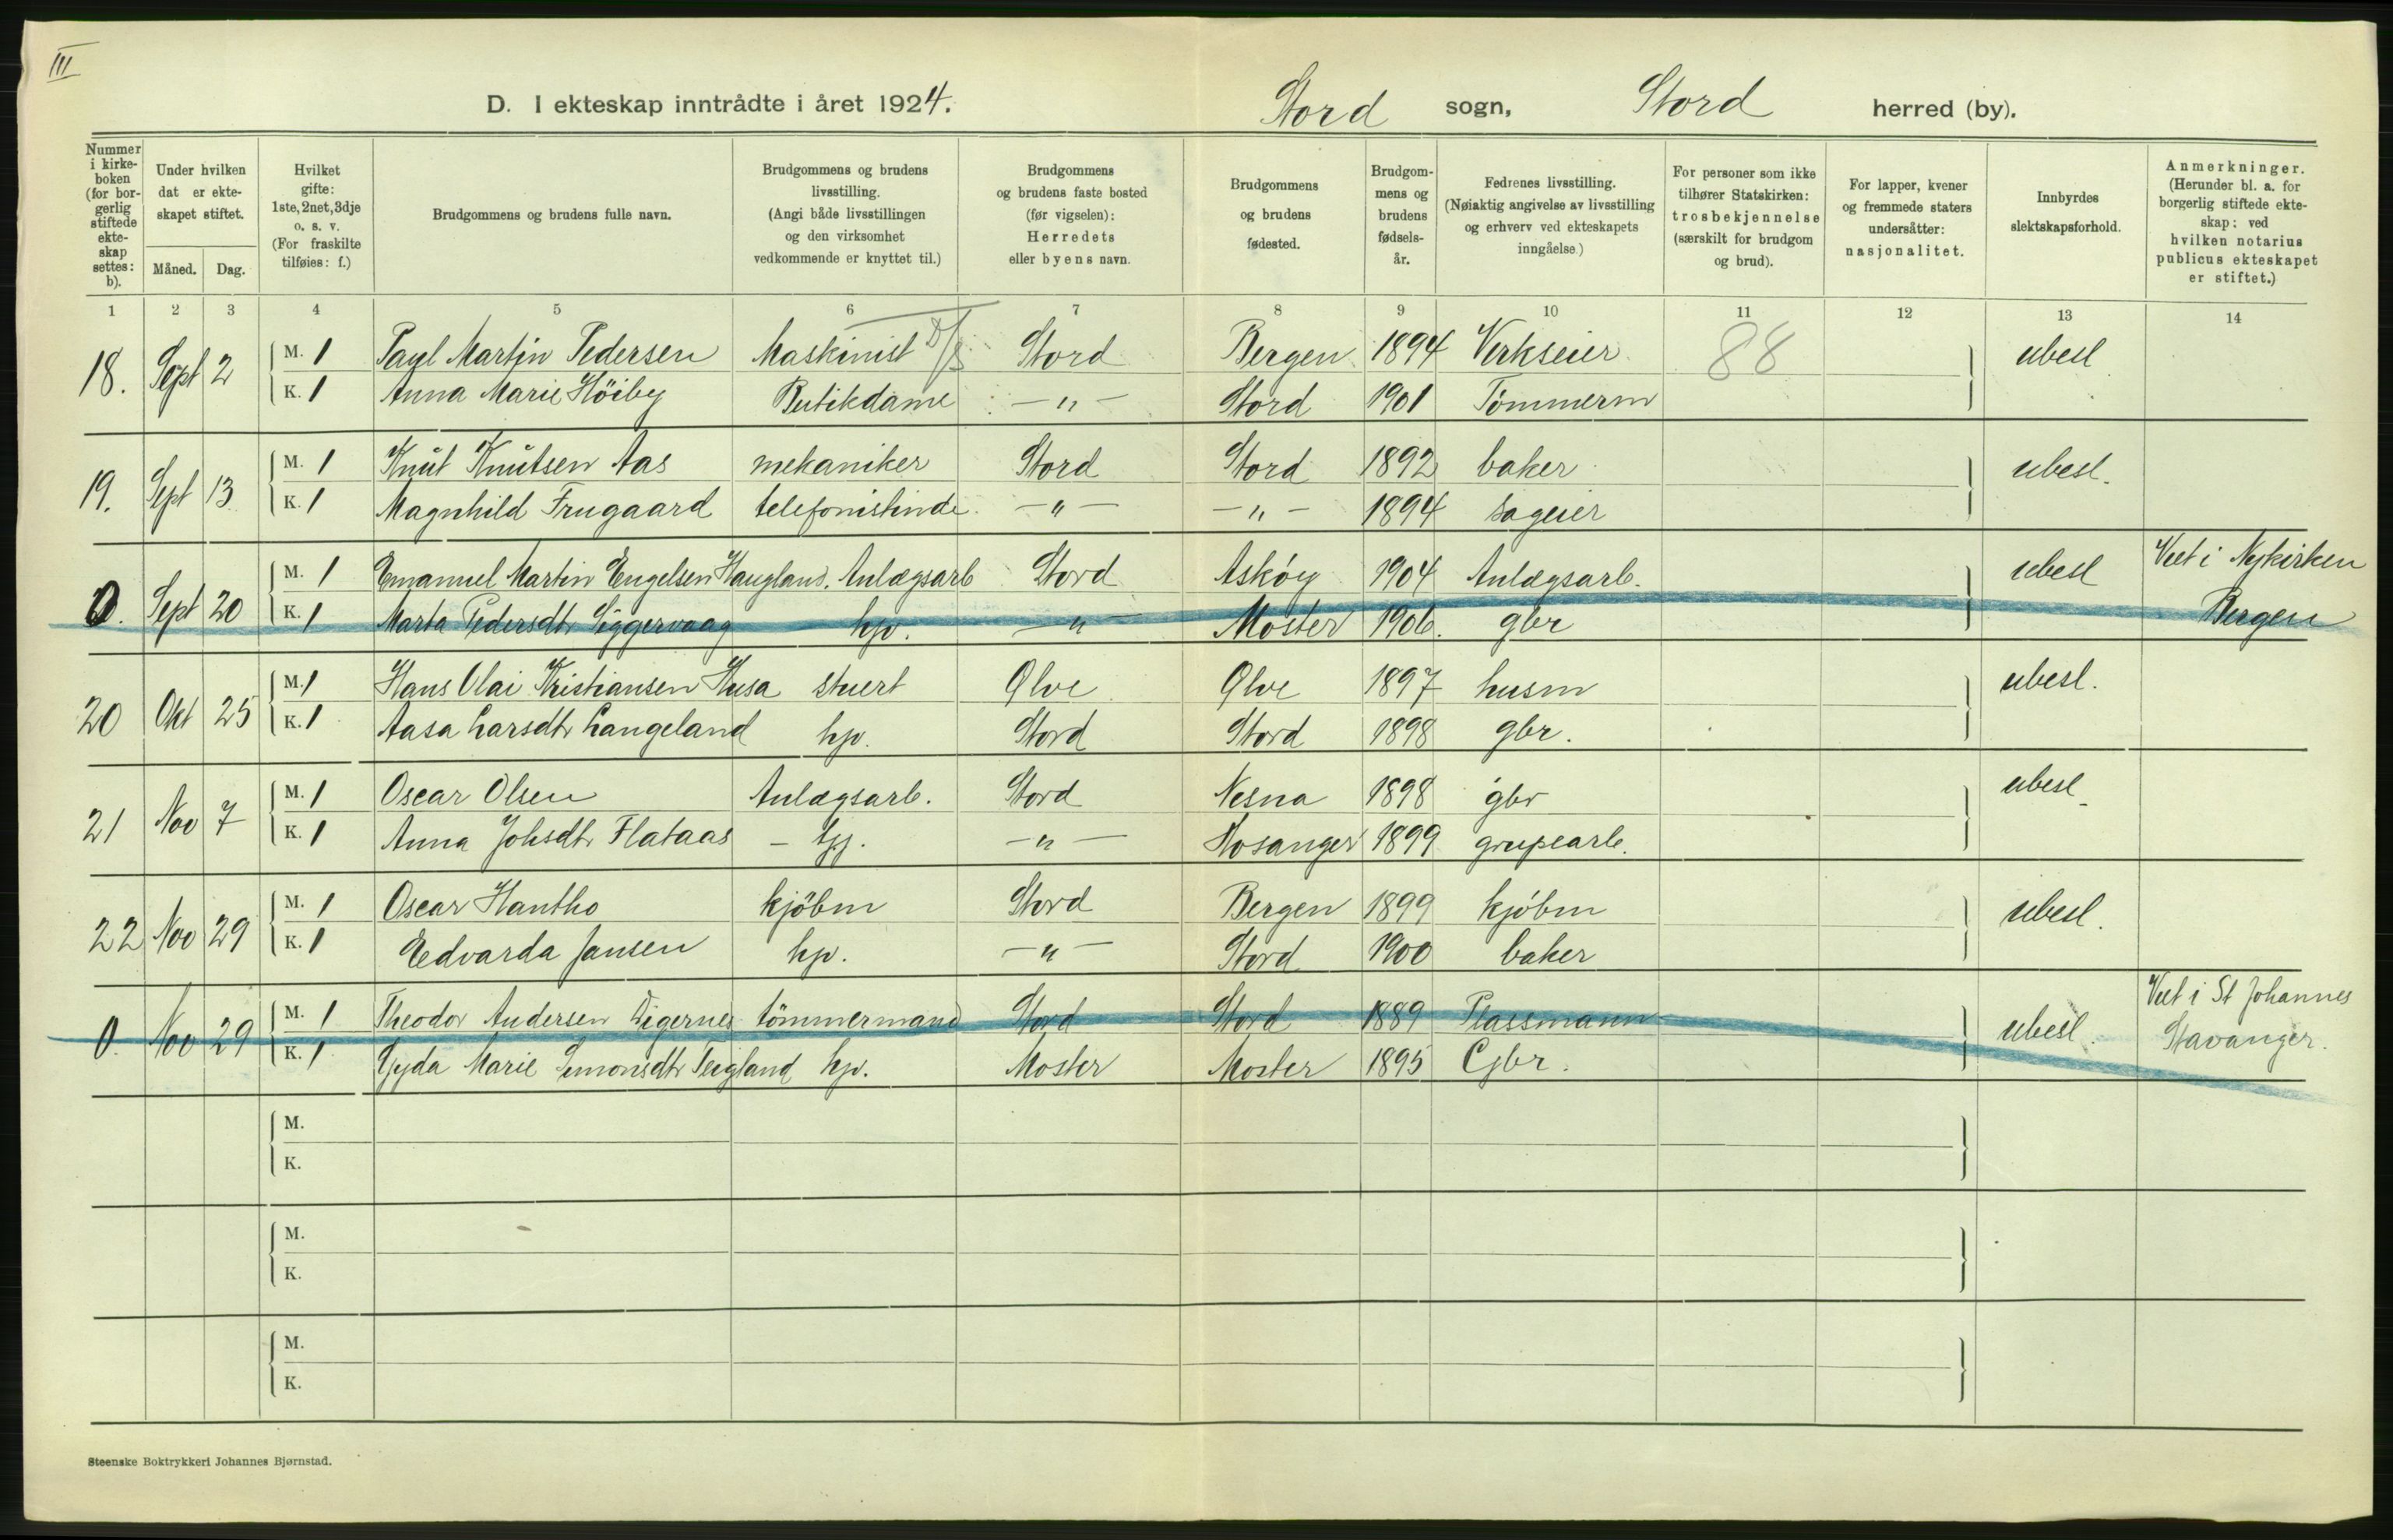 III
D. I ekteskap inntrådte i året 1924. Stord sogn, Stord herred (by).
Nummer i kirkeboken (for borgerlig stiftede ekteskap settes: b).
Under hvilken dat er ekteskapet stiftet.
Måned. Dag.
Hvilket gifte: 1ste, 2net, 3dje o. s. v. (For fraskilte tilføies: f.)
Brudgommens og brudens fulle navn.
Brudgommens og brudens livsstilling. (Angi både livsstillingen og den virksomhet vedkommende er knyttet til.)
Brudgommens og brudens faste bosted (før vigselen): Herredets eller byens navn.
Brudgommens og brudens fødested.
Brudgommens og brudens fødselsår.
Fedrenes livsstilling. (Nøiaktig angivelse av livsstilling og erhverv ved ekteskapets inngåelse.)
For personer som ikke tilhører Statskirken: trosbekjennelse (særskilt for brudgom og brud).
For lapper, kvener og fremmede staters undersåtter: nasjonalitet.
Innbyrdes slektskapsforhold.
Anmerkninger. (Herunder bl. a. for borgerlig stiftede ekteskap: ved hvilken notarius publicus ekteskapet er stiftet.)
1 2 3 4 5 6 7 8 9 10 11 12 13 14
18. Sept 2 M. 1 Paul Martin Pedersen Maskinist Stord Bergen 1894 Verkseier 88 ubesl
K. 1 Anna Marie Höiby Butikdame — " — Stord 1901 Tömmerm
19. Sept 13 M. 1 Knut Knutsen Aas mekaniker Stord Stord 1892 baker ubesl.
K. 1 Magnhild Frugaard telefonistinde — " — — " — 1894 sageier
0. Sept 20 M. 1 Emanuel Martin Engelsen Haugland. Anlægsarb Stord Asköy 1904 Anlægsarb. ubesl Viet i Nykirken
K. 1 Marta Pedersdtr Siggervaag hjv. — " — Moster 1906. gbr Bergen
20 Okt 25 M. 1 Hans Olai Kristiansen Husa stuert Ølve Ølve 1897 husm ubesl.
K. 1 Aasa Larsdtr Langeland hjv. Stord Stord 1898 gbr.
21 Nov 7 M. 1 Oscar Olsen Anlægsarb. Stord Nesna 1898 gbr ubesl
K. 1 Anna Johsdtr Flataas — tjj. — " — Hosanger 1899 grupearb.
22 Nov 29 M. 1 Oscar Hantho kjöbm Stord Bergen 1899 kjöbm ubesl.
K. 1 Edvarda Jansen hjv. — " — Stord 1900 baker
0. Nov 29 M. 1 Theodor Andersen Digernes tömmermand Stord Stord 1889 Plassmann ubesl. Viet i St Johannes
K. 1 Gyda Marie Simonsdtr Teigland hjv. Moster Moster 1895 Gbr. Stavanger.
M.
K.
M.
K.
M.
K.
Steenske Boktrykkeri Johannes Bjørnstad.